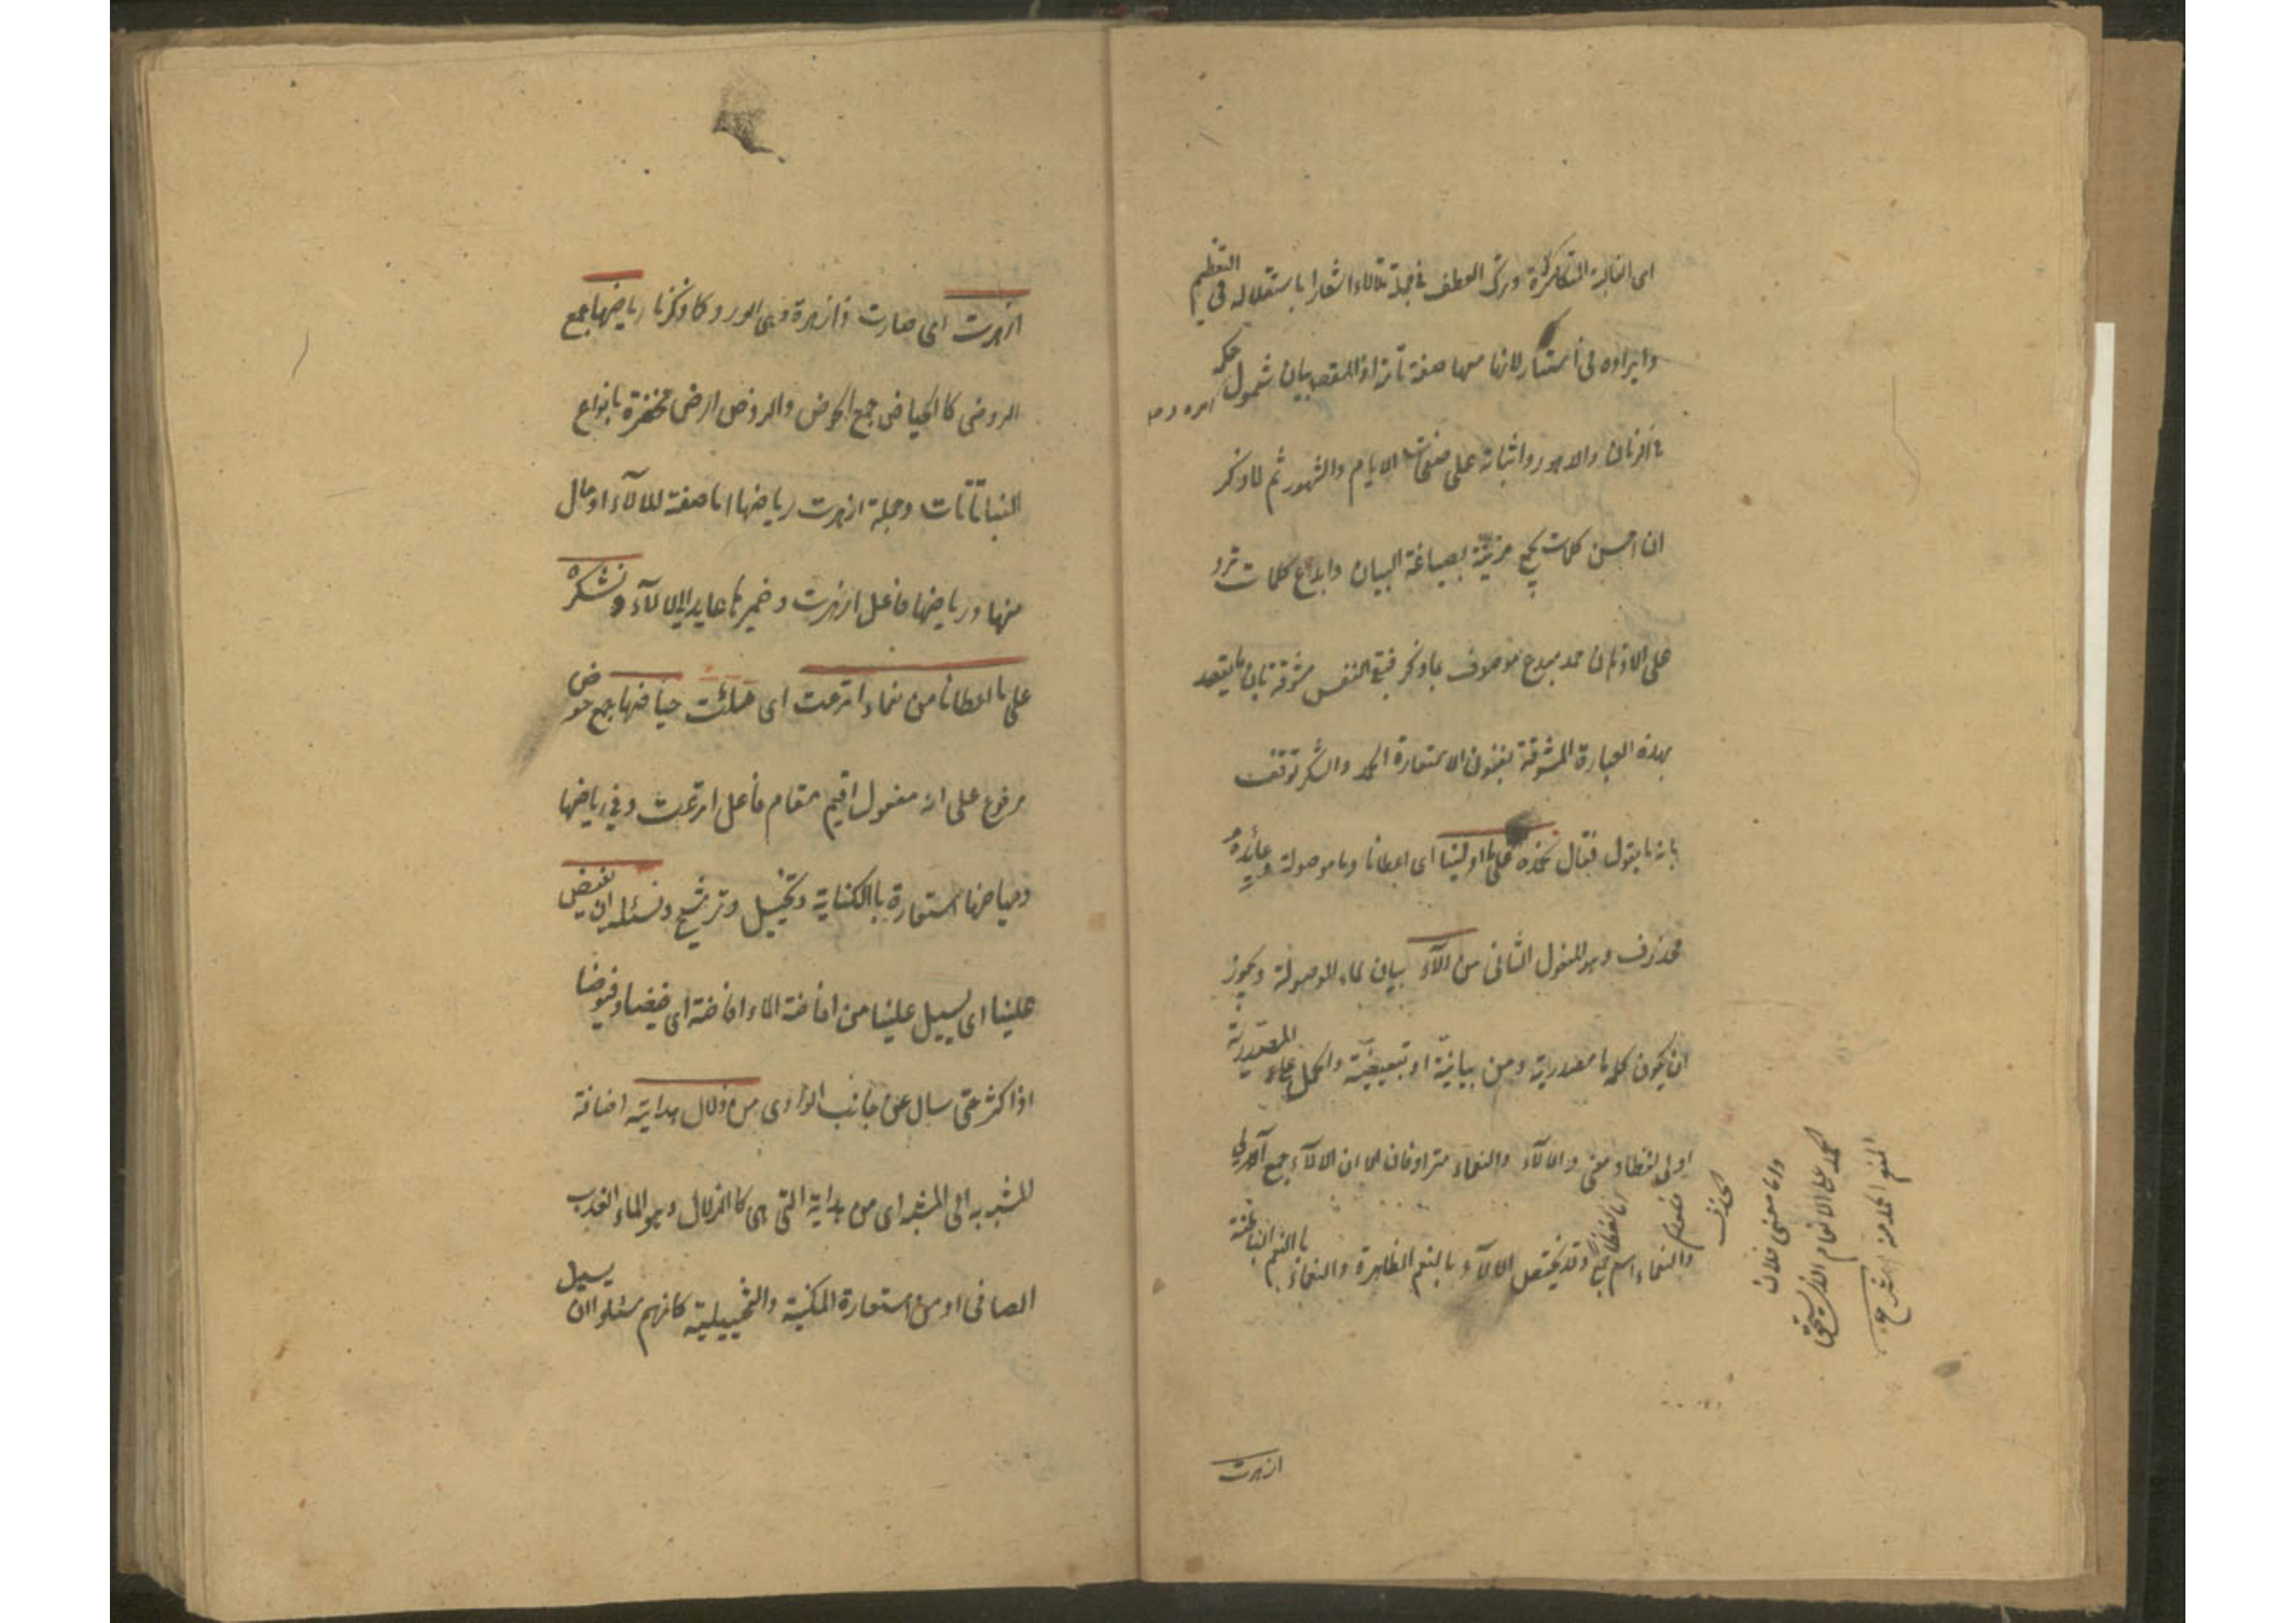 اى الغالبة المتكاثرة وترك العطف فى جملة تلألأ اشعارا باستقلاله فى التعظيم
وايراده لى استتار لانها منها صفة تامة اذ المقصد بيان شمول حكمه
فى الزمان والدهور واثباته على صفحات الايام والشهور ثم لما ذكر
ان احسن كلمات مزينة بصياغة البيان وابدع كلمات
على الاذهان حمد مبدع موصوف بما ذكر فبقى النفس مشوقة بان ما يقصد
بهذه العبارة المشوقة بفنون الاستعارة الحمد والشكر توقف
بانه ما يقول فقال نحمده على ما اوليتنا اى اعطانا وما موصولة وعايده
محذوف وهو المفعول الثانى من الآلاء بيان لما الموصولة ويجوز
ان يكون كلمة ما مصدرية ومن بيانية او تبعيضية والحمل على المصدرية
اولى لفظا ومعنى والالآء والنعماء مترادفان الا ان الالآء جمع
والنعماء اسم جمع وقد يختص الالآء بالنعم الظاهرة والنعماء بالنعم الباطنة
اما لفظا
فلعدم
الحذف
واما معنى فلان
الحمد على الانعام الذى
المنعم
ازهرت
ازهرت اى صارت ذا زهرة وهى الورد وكا وذكرنا رياضها جمع
الروض كالحياض جمع الحوض والروض ارض مخضرة بانواع
النباتات وجملة ازهرت رياضها اما صفة للالآء او حال
منها ورياضها فاعل ازهرت وضميرها عايد الى الالآء ونشكره
على ما اعطانا من نعماء اترعت اى ملئت حياضها جمع حوض
مرفوع على انه مفعول اقيم مقام فاعل اترعت وفى رياضها
وحياضها استعارة بالكناية وتخييل وترشيح ونسئله ان يفيض
علينا اى يسيل علينا من افاضة الماء افاضة اى فيضا وفيوضا
اذا كثر حتى سال عن جانب الوادى من زلال هدايته اضافة
المشبه به الى المشبه اى من هداية التى هى كالزلال وهو الماء العذب
الصافى او من استعارة المكنية والتخييلية كانهم سئلوا ان يسيل